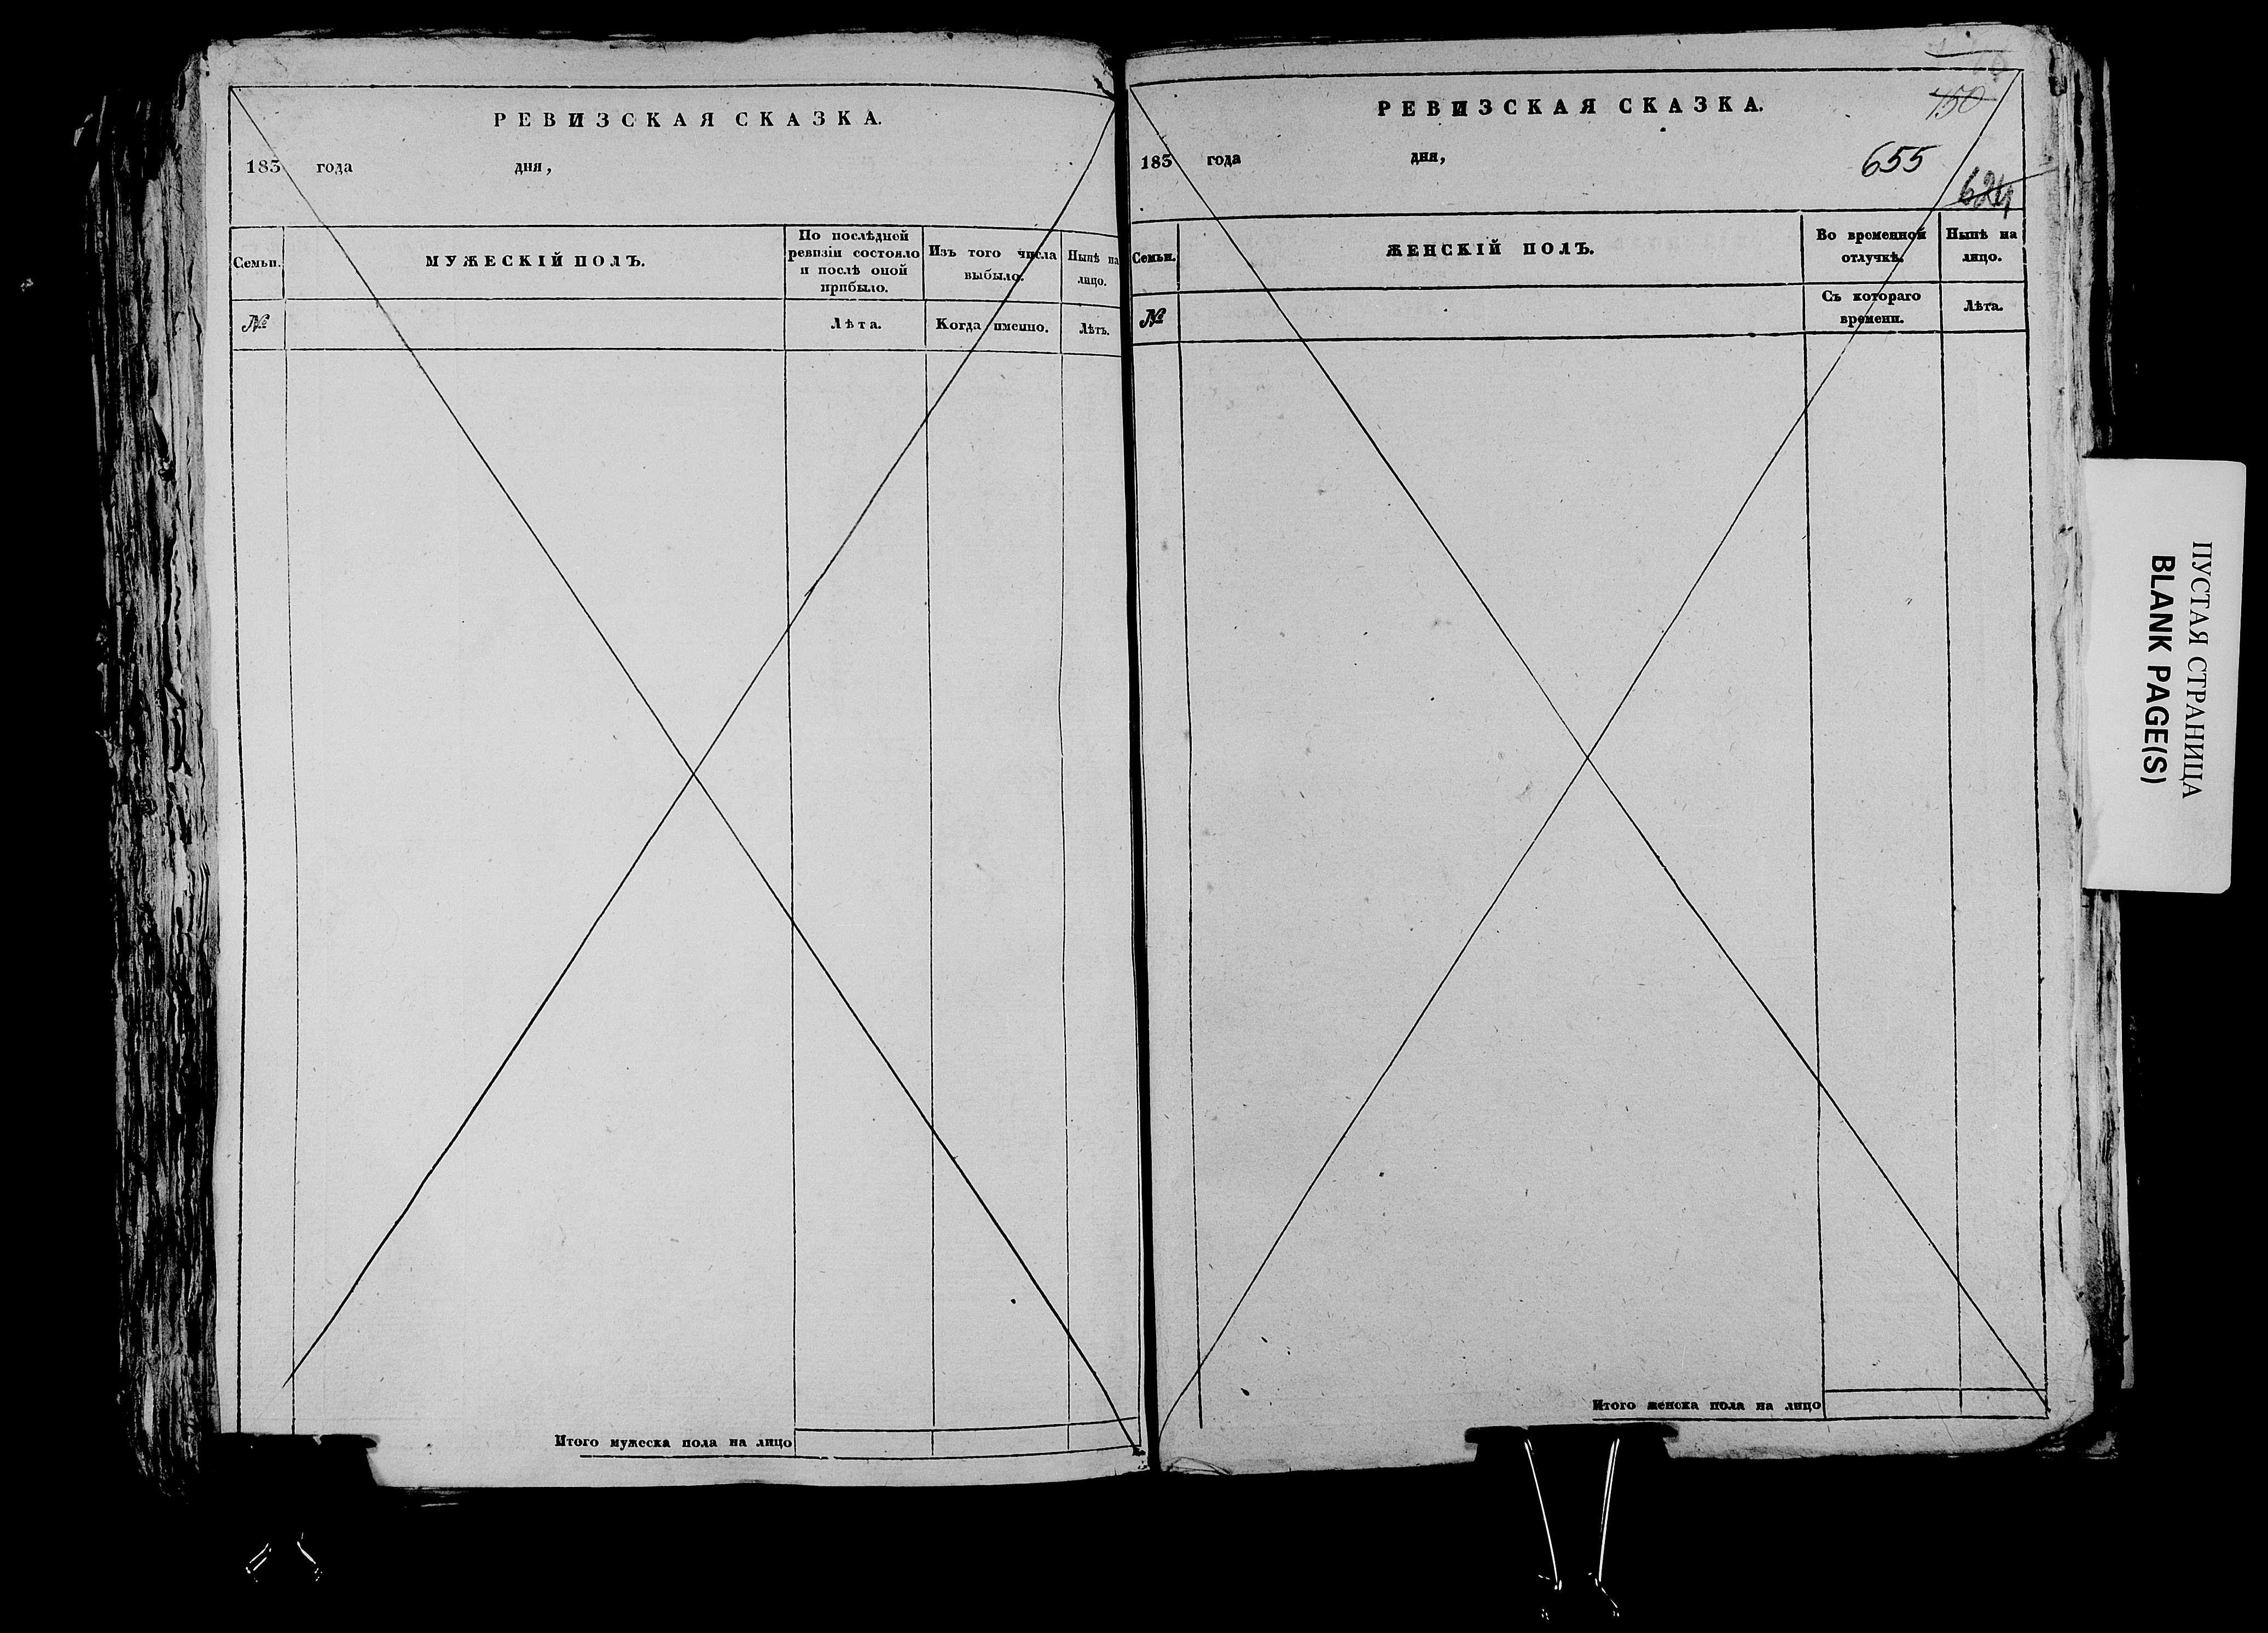 РЕВИЗСКАЯ СКАЗКА.
183 года дня,
Семьи.
МУЖЕСКІЙ ПОЛЪ.
По послѣдней
ревизіи состояло
и послѣ оной
прибыло.
Изъ того числа
выбыло.
Нынѣ на
лицо.
№
Лѣта.
Когда именно.
Лѣтъ.
Итого мужеска пола на лицо
РЕВИЗСКАЯ СКАЗКА.
150
183 года дня,
655
624
Семьи.
ЖЕНСКІЙ ПОЛЪ.
Во временной
отлучкѣ.
Нынѣ на
лицо.
№
Съ котораго
времени.
Лѣта.
Итого женска пола на лицо
ПУСТАЯ СТРАНИЦА
BLANK PAGE(S)